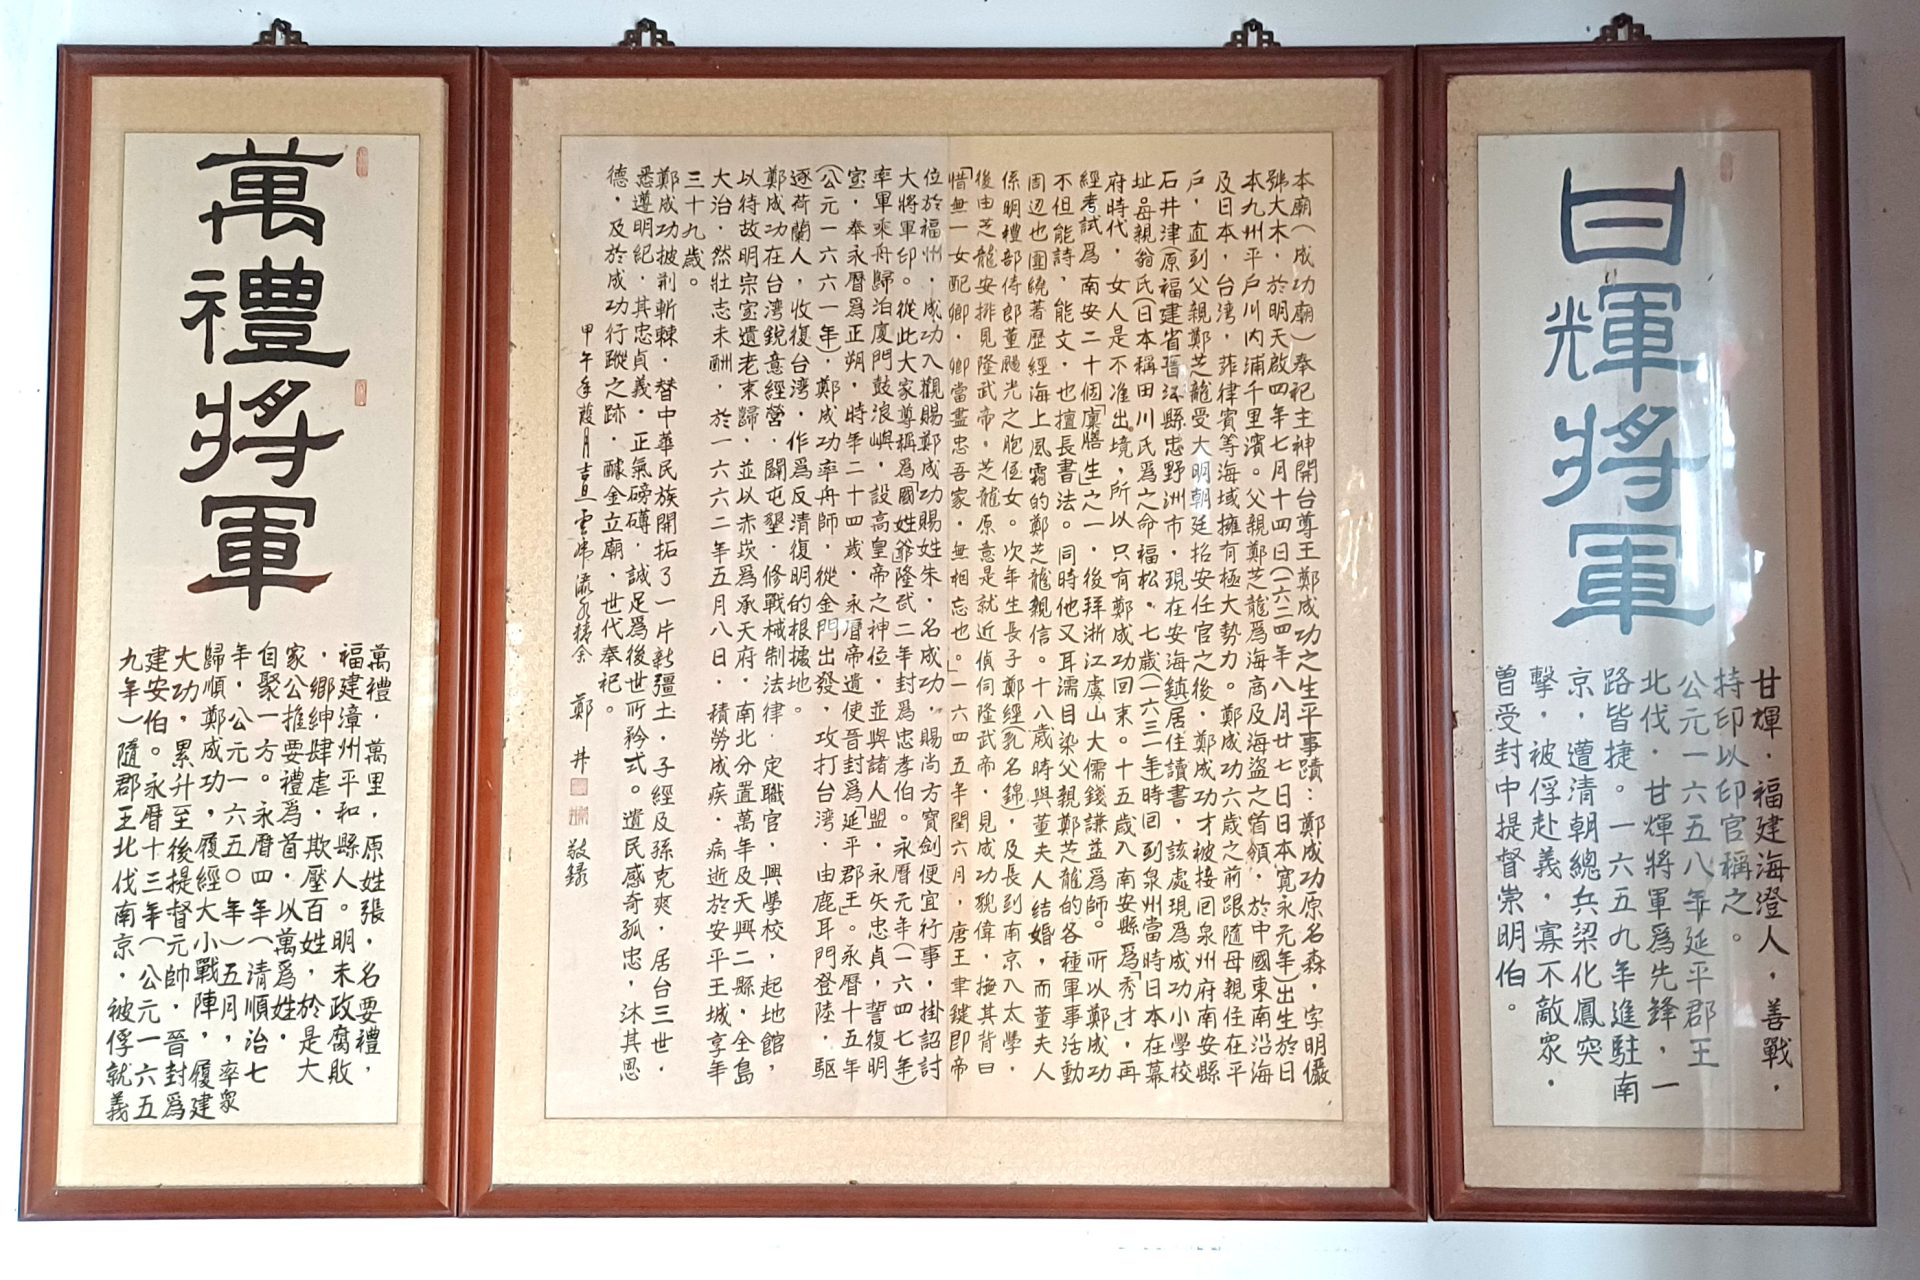 甘輝將軍
甘輝．福建海澄人，善戰，
持印以印官稱之。
公元一六五八年延平郡王
北伐．甘輝將軍為先鋒，一
路皆捷。一六五九年進駐南
京，遭清朝總兵梁化鳳突
擊，被俘赴義，寡不敵眾．
曾受封中提督崇明伯。
本廟（成功廟）奉祀主神開台尊王鄭成功之生平事蹟：鄭成功原名森，字明儼
號大木，於明天啟四年七月十四日（一六二四年八月廿七日日本寬永元年）出生於日
本九州平戶川內浦千里濱。父親鄭芝龍為海商及海盜之首領．於中國東南沿海
及日本，台湾，菲律賓等海域擁有極大勢力。鄭成功六歲之前跟隨母親住在平
戶，直到父親鄭芝龍受大明朝廷招安任官之後，鄭成功才被接回泉州府南安縣
石井津（原福建省晉江縣忠野洲市，現在安海鎮）居住讀書，該處現為成功小學校
址。母親翁氏（日本稱田川氏為之命福松．七歲（一六三一年時回到泉州當時日本在幕
府時代，女人是不准出境，所以只有鄭成功回來。十五歲入南安縣為「秀才」，再
經考試為南安二十個「廩膳生」之一，後拜浙江虞山大儒錢謙益為師。所以鄭成功
不但能詩，能文，也擅長書法。同時他又耳濡目染父親鄭芝龍的各種軍事活動
周辺也圍繞著歷經海上風霜的鄭芝龍親信。十八歲時與董夫人結婚，而董夫人
係明禮部侍郎董颺光之胞侄女。次年生長子鄭經（乳名錦），及長到南京入太學，
後由芝龍安排見隆武帝，芝龍原意是就近偵伺隆武帝．見成功貌偉，撫其背曰
「惜無一女配卿．卿當盡忠吾家．無相忘也。」一六四五年閏六月，唐王聿鍵即帝
位於福州，成功入觀賜鄭成功賜姓朱．名成功，賜尚方寶劍便宜行事，掛詔討
大將軍印。從此大家尊稱為「國姓爺」隆武二年封為忠孝伯。永曆元年（一六四七年）
率軍乘舟歸泊廈門鼓浪嶼，設高皇帝之神位，並與諸人盟．永矢忠貞，誓復明
室，奉永曆為正朔，時年二十四歲．永曆帝遣使晉封為「延平郡王」。永曆十五年
（公元一六六一年），鄭成功率舟師，從金門出發，攻打台湾．由鹿耳門登陸，驅
逐荷蘭人，收復台湾，作為反清復明的根據地。
鄭成功在台湾銳意經營．闢屯墾．修戰械制法律．定職官，興學校，起地館，
以待故明宗室遺老來歸．並以赤崁為承天府．南北分置萬年及天興二縣，全島
大治．然壯志未酬．於一六六二年五月八日．積勞成疾．病逝於安平王城享年
三十九歲。
鄭成功披荆斬棘．替中華民族開拓了一片新疆土．子經及孫克爽，居台三世．
悉遵明紀．其忠貞義．正氣磅礡．誠足為後世所矜式。遺民感奇孤忠，沐其恩
德，及於成功行蹤之跡．醵金立廟．世代奉祀。
甲午年葭月吉旦 鄭井 敬錄
萬禮將軍
萬禮．萬里，原姓張，名要禮，
福建漳州平和縣人。明末政腐敗
，鄉紳肆虐．欺壓百姓，於是大
家公推要禮為首．以萬為姓．
自聚一方。永曆四年（清順治七
年，公元一六五〇年）五月，率眾
歸順鄭成功，履經大小戰陣，履建
大功，累升至後提督元帥．晉封為
建安伯。永曆十三年（公元一六五
九年）隨郡王北伐南京．被俘就義